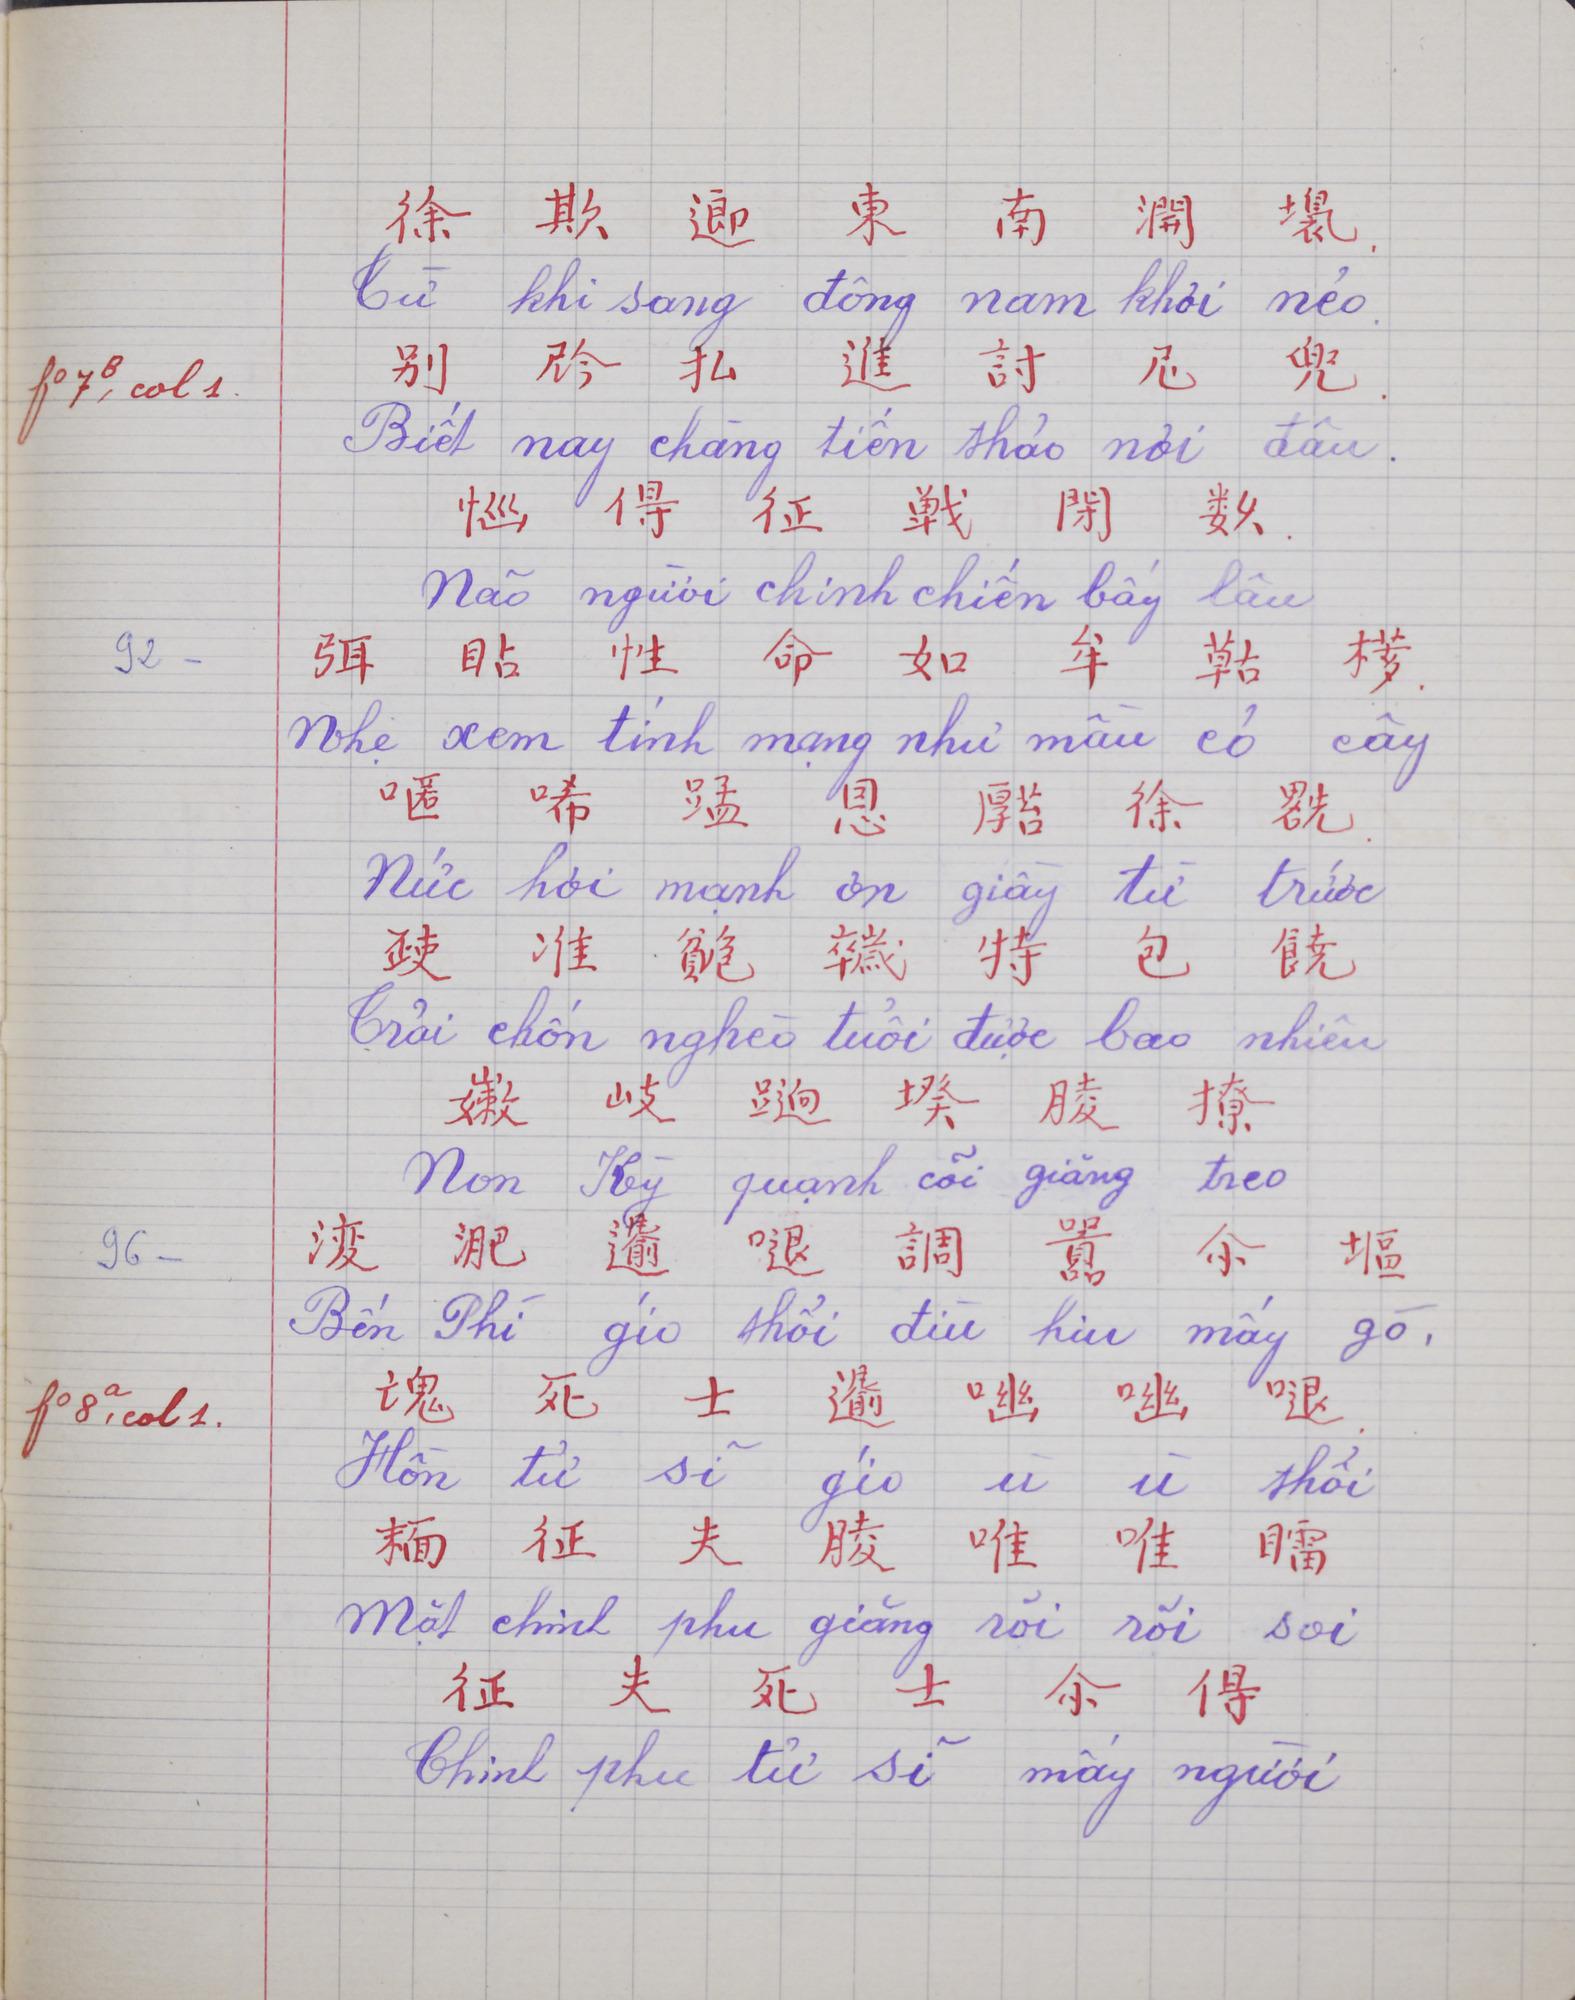 徐 欺 𨖅 東 南 𣾺 裊.
Từ khi sang đông nam khơi nẻo.
fº7ᴮ, col 1.
别 𫢩 払 進 討 尼 兜.
Biết nay chàng tiến thảo nơi đâu.
惱 得 征 戦 閉 数.
Não người chinh chiến bấy lâu
92 -
弭 貼 性 命 如 牟 𦹵 𣘃.
Nhẹ xem tính mạng như màu cỏ cây
𠿁 唏 𬦪 恩 𠫅 徐 𠓀.
Nức hơi mạnh ơn giầy từ trước
𣦰 准 𧵆 𢆫 特 包 饒
Trải chốn nghèo tuổi được bao nhiêu
𡽫 岐 𨓡 𡎝 𦝄 撩
Non Kỳ quạnh cõi giăng treo
96 -
𣷷 淝 𩙍 𠺙 調 囂 余 塸
Bến Phì gió thổi đìu hiu mấy gò.
fº8ª, col 1.
魂 死 士 𩙍 㘭 㘭 𠺙.
Hồn tử sĩ gió ù ù thổi
𩈘 征 夫 𦝄 唯 唯 𥋸
Mặt chinh phu giăng rõi rõi soi
征 夫 死 士 余 得
Chinh phu tử sĩ mấy người